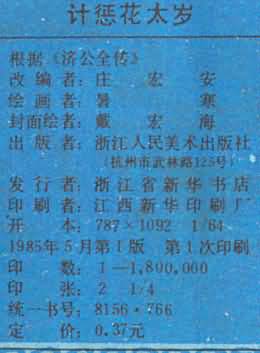 计惩花太岁
根据《济公全传》
改编者:庄宏安
绘画者:暑寒
封面绘者:戴宏海
出版者:浙江人民美术出版社
(杭州市武林路125号)
发行者:浙江省新华书店
印刷者:江西新华印刷厂
开本:787×1092 1/64
1985年5月第1版 第1次印刷
印数:1—1,800,000
印张:2 1/4
统一书号:8156·766
定价:0.37元